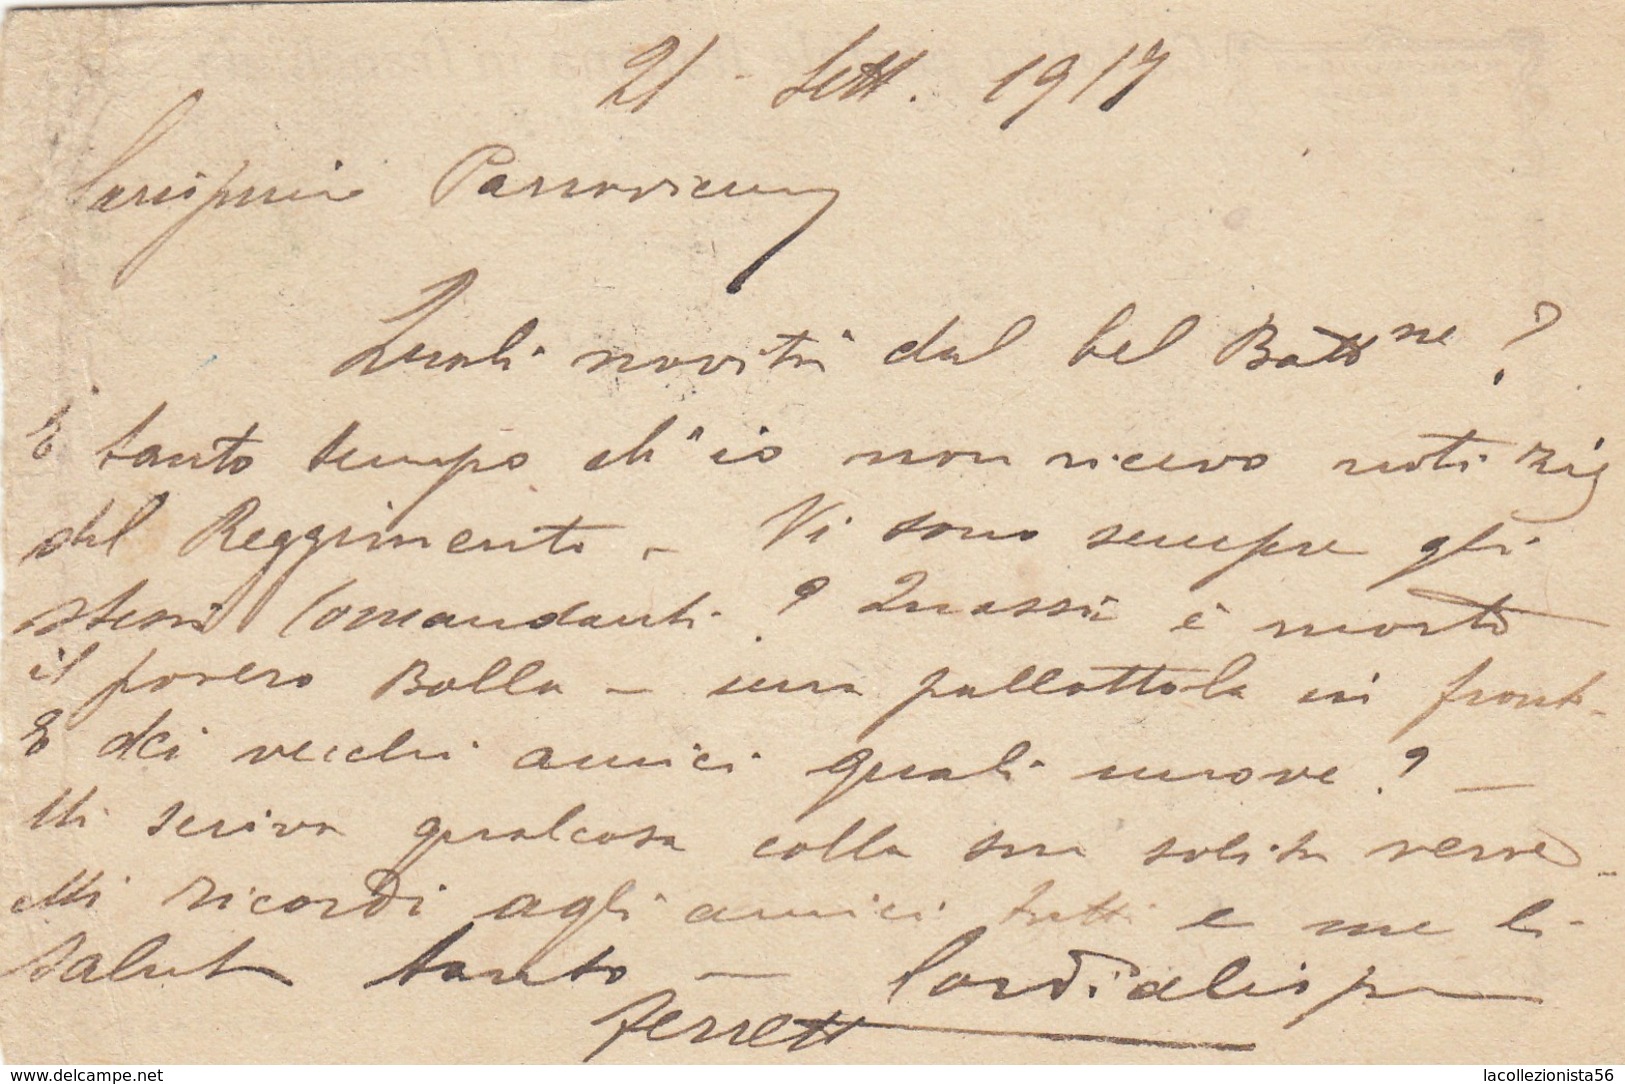 21 - Sett. 1917
Carissimo
Quali novità dal bel Battne ?
È tanto tempo ch'io non ricevo notizie
del Reggimento - Vi sono sempre gli
stessi Comandanti ? Quassù è morto
il povero Bolla - una pallottola in front.
E dei vecchi amici quali nuove ? -
Mi scriva qualcosa colla sua solita verve -
Mi ricordi agli amici tutti e me li
saluti tanto - Cordialissim
Ferretti
www.delcampe.net
lacollezionista56